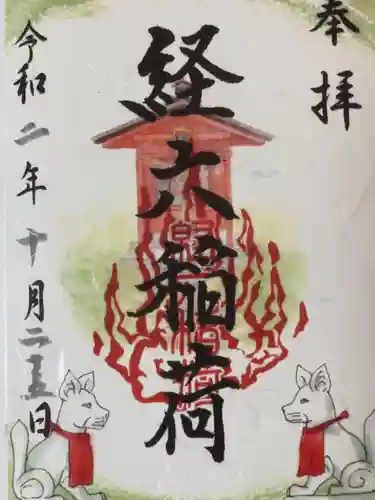 奉拝
経六稲荷
令和二年十月二五日